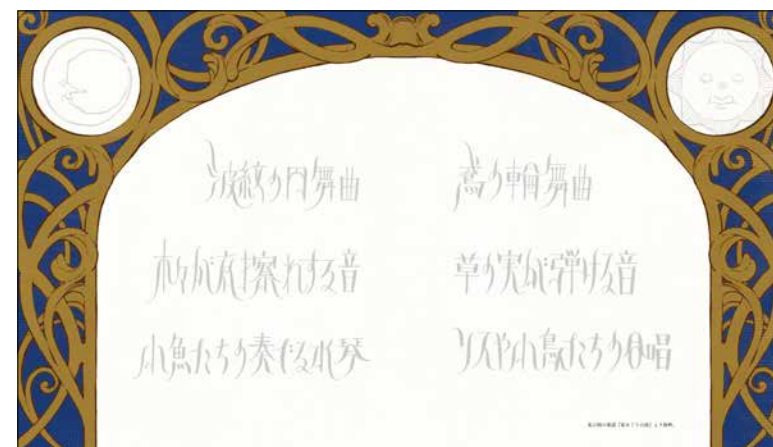 波紋の円舞曲
木々が衣擦れする音
小魚たちの奏でる水琴
鳶の輪舞曲
草の実が弾ける音
リスや小鳥たちの合唱